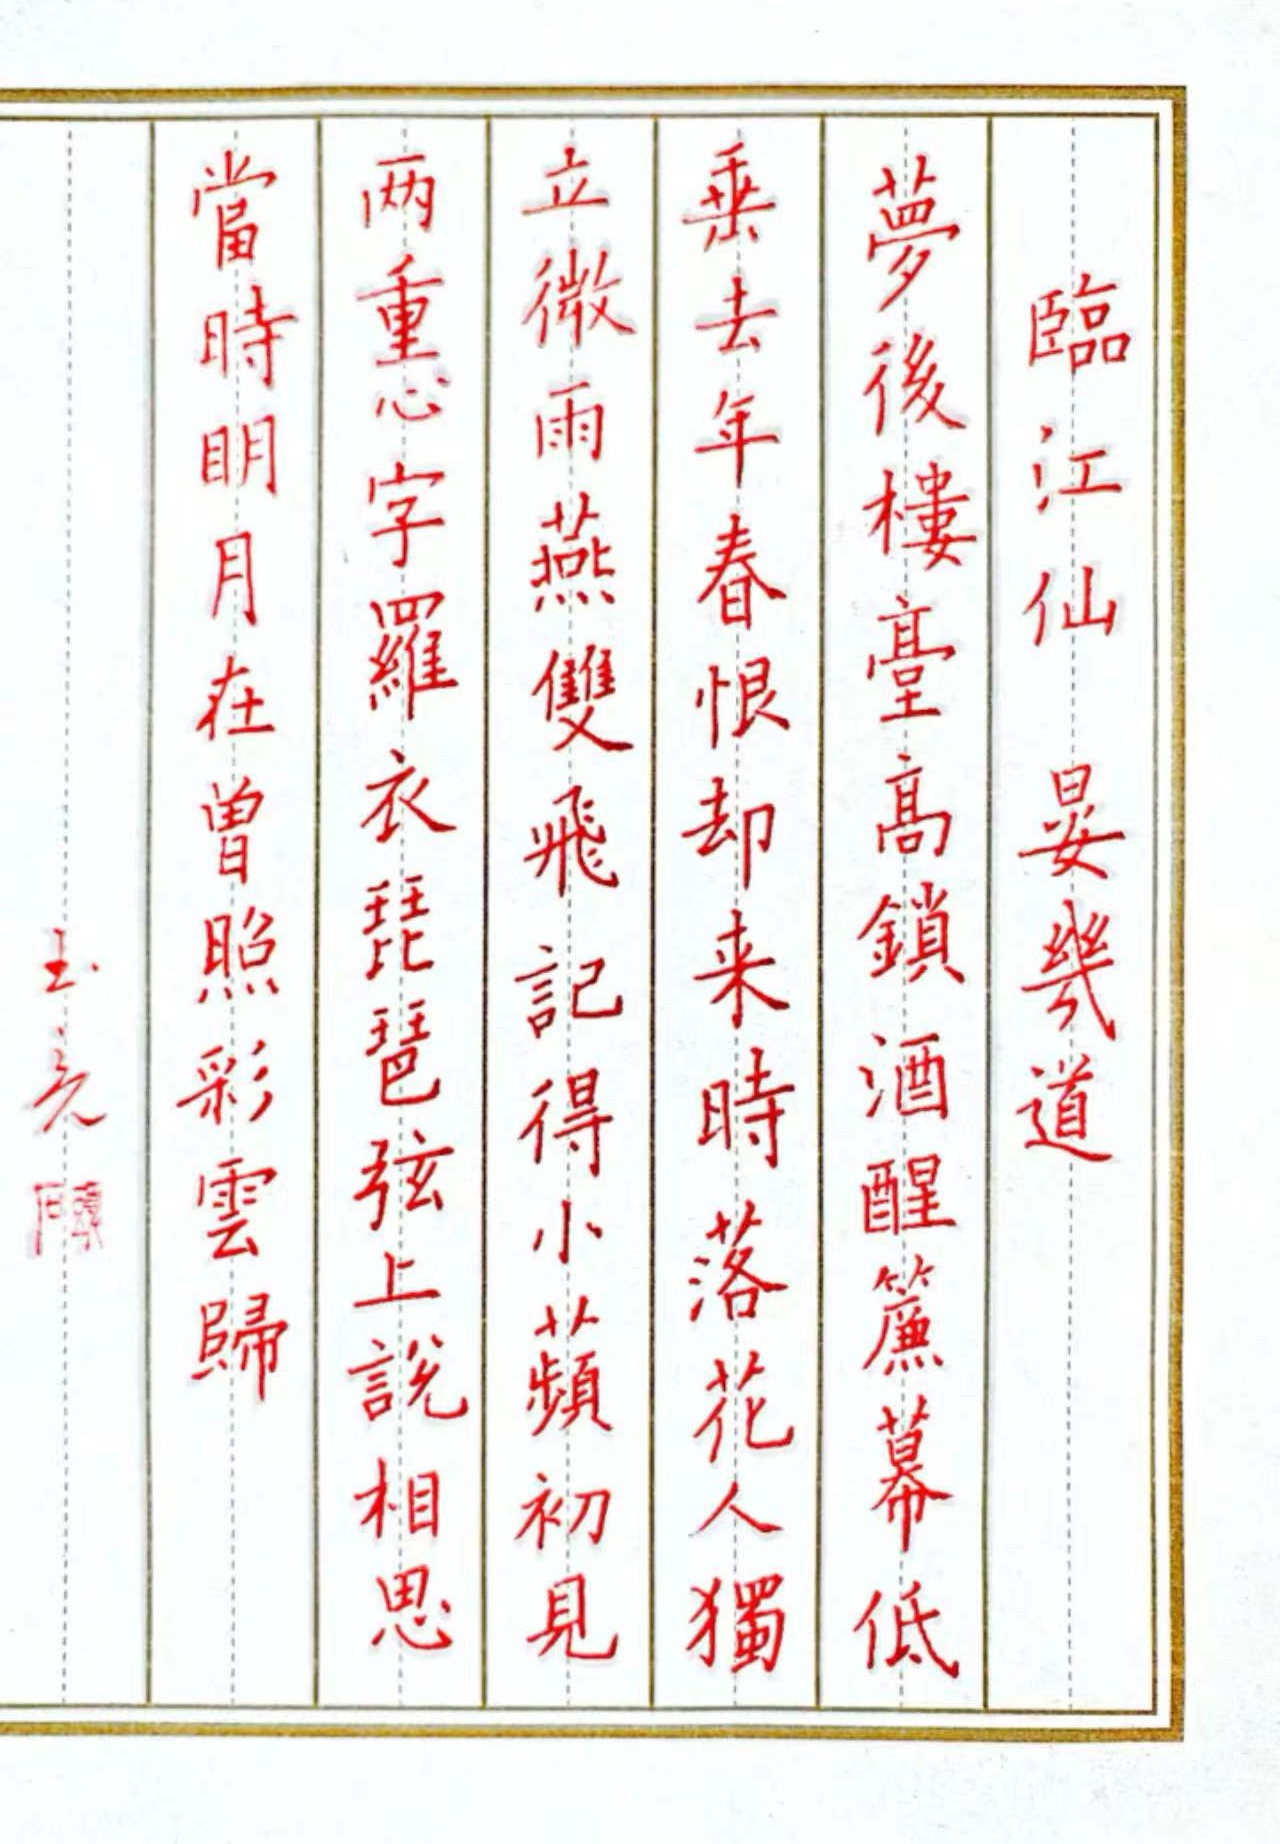 臨江仙 晏幾道
夢後樓臺高鎖酒醒簾幕低
垂去年春恨却来時落花人獨
立微雨燕雙飛記得小蘋初見
两重心字羅衣琵琶弦上說相思
當時明月在曾照彩雲歸
玉亮